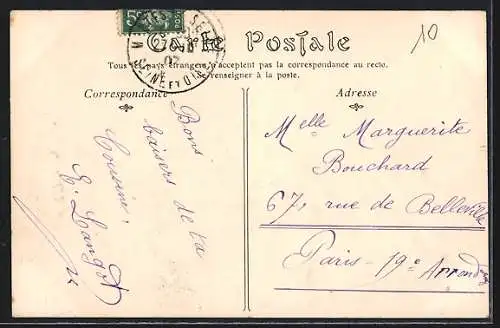 10
Carte Postale
Tous les pays étrangers n'acceptent pas la correspondance au recto.
Se renseigner à la poste.
Correspondance
Adresse
Bons
baisers de ta
Cousine
E. Langot
Melle Marguerite
Bouchard
67, rue de Belleville
Paris - 19e Arrond